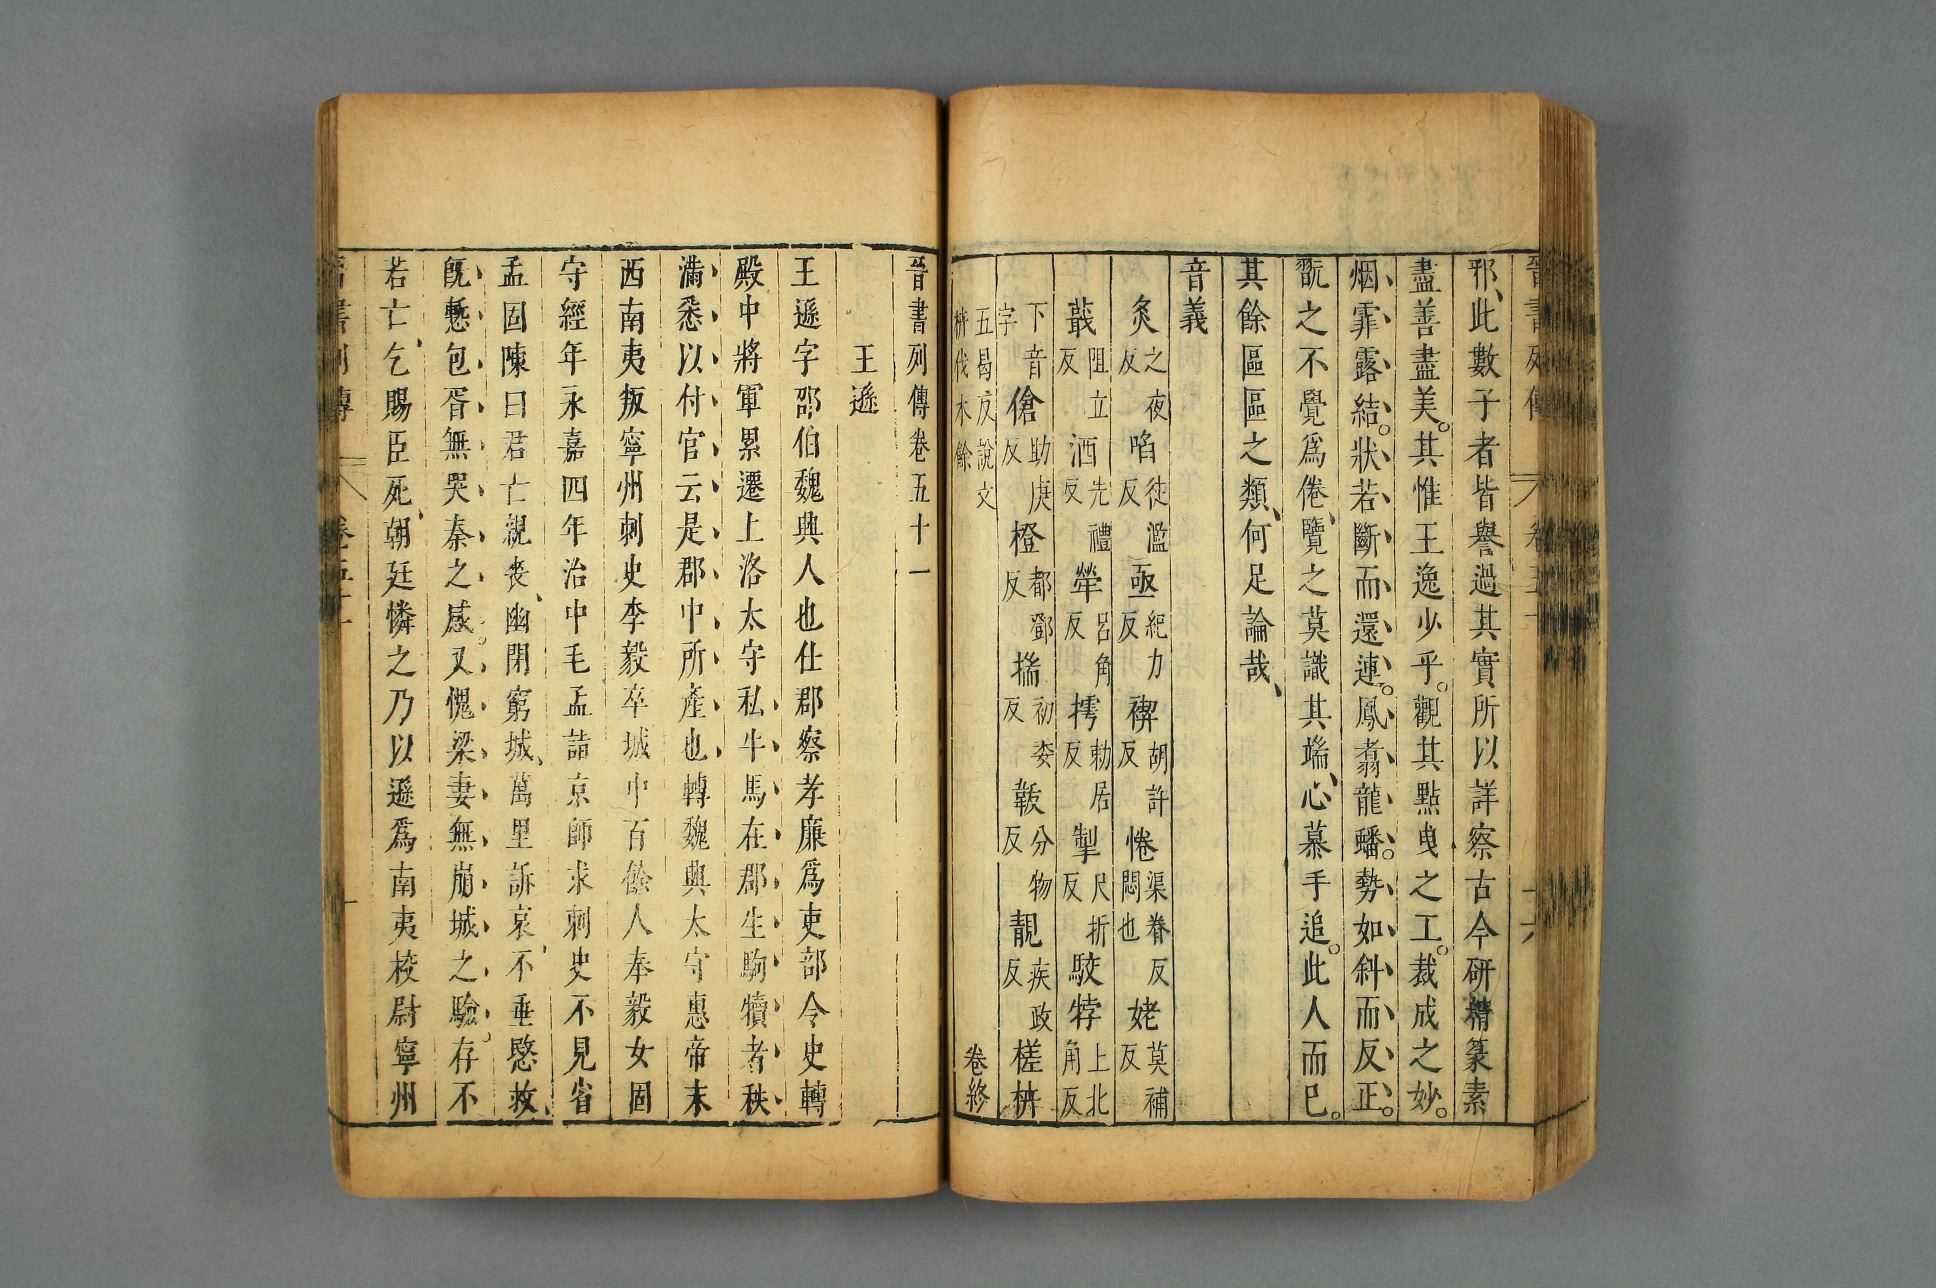 晉書列傳 卷五十 十六
邪此數子者皆譽過其實所以詳察古今研精篆素
盡善盡美。其惟王逸少乎。觀其點曳之工。裁成之妙。
烟霏露結。狀若斷而還連。鳳翥龍蟠。勢如斜而反正。
翫之不覺爲倦覽之莫識其端心慕手追。此人而已。
其餘區區之類何足論哉
音義
炙之夜反 啗徒濫反 亟紀力反 禊胡許反 惓渠眷反悶也 姥莫補反
蕺阻立反 洒先禮反 犖呂角反 摴勅居反 掣尺折反 駮犉上北角反
下音字 傖助庚反 橙都鄧反 揣初委反 韍分物反 靚疾政反 槎枿
五曷反說文枿伐木餘 卷終
晉書列傳卷五十一
王遜
王遜字邵伯魏興人也仕郡察孝廉爲吏部令史轉
殿中將軍累遷上洛太守私牛馬在郡生駒犢者秩
滿悉以付官云是郡中所產也轉魏興太守惠帝末
西南夷叛寧州刺史李毅卒城中百餘人奉毅女固
守經年永嘉四年治中毛孟詣京師求刺史不見省
孟固陳曰君亡親喪幽閉窮城萬里訴哀不垂愍救
旣慙包胥無哭秦之感。又愧梁妻無崩城之驗。存不
若亡乞賜臣死朝廷憐之乃以遜爲南夷校尉寧州
晉書列傳 卷五十一 一